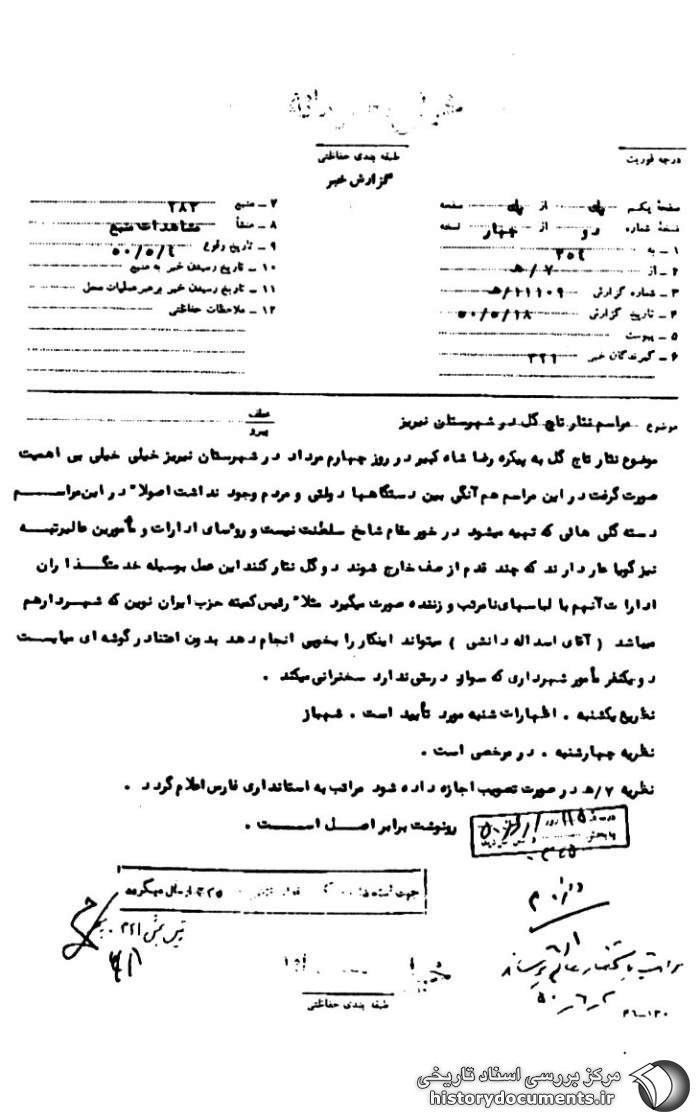 طبقه بندی حفاظتی
درجه فوریت
گزارش خبر
صفحهٔ یکم از صفحه
نسخهٔ شماره دو از چهار نسخه
۱ ـ به ۳۵۴
۲ ـ از ۷/هـ
۳ ـ شماره گزارش ۲۱۱۰۹/هـ
۴ ـ تاریخ گزارش ۵۰/۵/۱۸
۵ ـ پیوست
۶ ـ گیرندگان خبر ۳۲۱
۷ ـ منبع ۲۸۲
۸ ـ منشأ مشاهدات منبع
۹ ـ تاریخ وقوع ۵۰/۵/٤
۱۰ ـ تاریخ رسیدن خبر به منبع
۱۱ ـ تاریخ رسیدن خبر برهبر عملیات محل
۱۲ ـ ملاحظات حفاظتی
موضوع مراسم نثار تاج گل در شهرستان نیریز
عطف
پیرو
موضوع نثار تاج گل به پیکره رضا شاه کبیر در روز چهارم مرداد در شهرستان نیریز خیلی خیلی بی اهمیت
صورت گرفت در این مراسم هم آنگی بین دستگاهها دولتی و مردم وجود نداشت اصولا" در این مراسم
دسته گلی هائی که تهیه میشود در خور مقام شامخ سلطنت نیست و روٴسای ادارات و مأمورین عالیرتبه
نیز گویا عار دارند که چند قدم از صف خارج شوند و گل نثار کنند این عمل بوسیله خدمتگذاران
ادارات آنهم با لباسهای نامرتب و زننده صورت میگیرد مثلا" رئیس کمیته حزب ایران نوین که شهردار هم
میباشد ( آقای اسداله دانشی ) میتواند اینکار را بخوبی انجام دهد بدون اعتنا در گوشه ای میایست
و یکنفر مأمور شهرداری که سواد درستی ندارد سخنرانی میکند .
نظریه یکشنبه . اظهارات شنبه مورد تأیید است . شهباز
نظریه چهارشنبه . در مرخصی است .
نظریه ۷/هـ در صورت تصویب اجازه داده شود مراتب به استانداری فارس اعلام گردد .
رونوشت برابر اصل است .
جهت استفاده ارسال میگردد
طبقه بندی حفاظتی
۵۰
۳۶ـ۱۳۰
مرکز بررسی اسناد تاریخی
historydocuments.ir